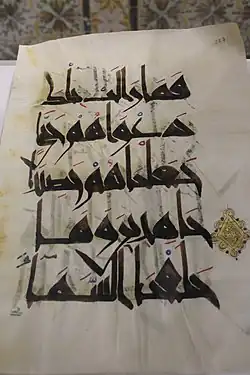 فما زالت تلك
دعواهم حتى
جعلناهم حصيدا
خامدين وما
خلقنا السما